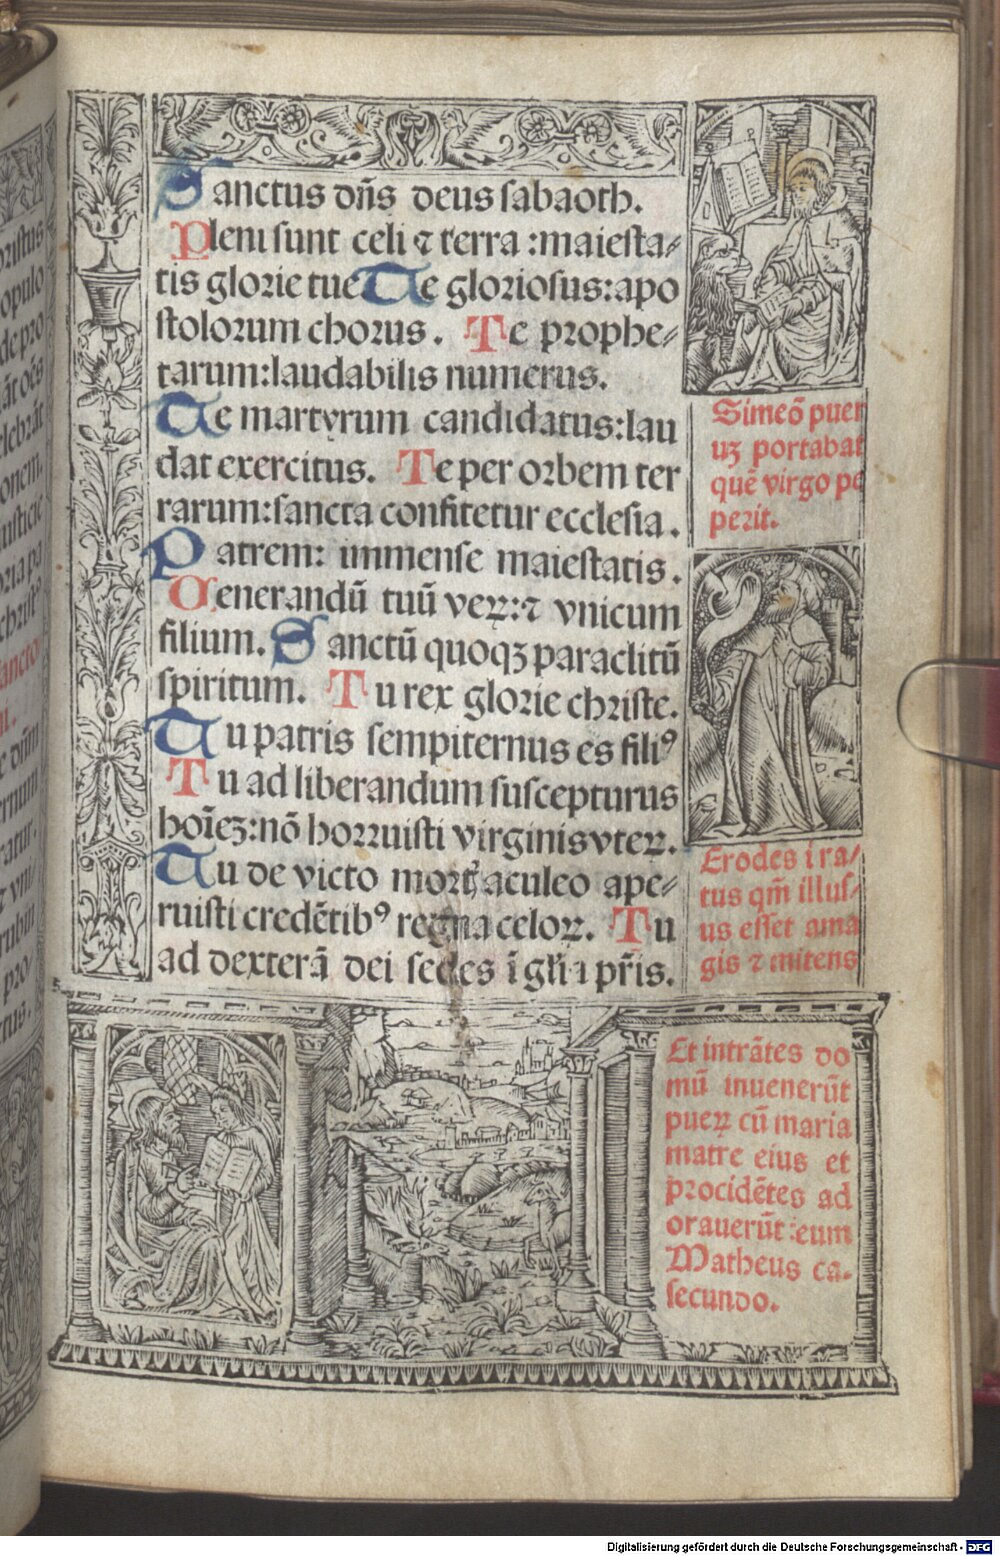 Sanctus dn̄s deus ſabaoth.
Pleni ſunt celi ⁊ terra :maieſta⸗
tis glorie tue Te glorioſus:apo
ſtolorum chorus. Te prophe⸗
tarum:laudabilis numerus.
Te martyrum candidatus:lau
dat exercitus. Te per orbem ter
rarum:ſancta confitetur eccleſia.
Patrem: immenſe maieſtatis.
Venerandū tuū veꝝ:⁊ vnicum
filium. Sanctū quoqꝫ paraclitū
ſpiritum. Tu rex glorie chriſte.
Tu patris ſempiternus es filiꝰ
Tu ad liberandum ſuſcepturus
hoīeꝫ:nō horruiſti virginis vteꝝ.
Tu de victo mortꝭ aculeo ape⸗
ruiſti credētibꝰ regna celoꝝ. Tu
ad dexterā dei ſedes ī gl̄ia pr̄is.
Simeō puer
uꝫ portabat
quē virgo pe
perit.
Erodes ira⸗
tus qm̄ illuſ⸗
us eſſet ama
gis ⁊ mitens
Et intrātes do
mū inuenerūt
pueꝝ cū maria
matre eius et
procidētes ad
orauerūt:eum
Matheus ca.
ſecundo.
ruſtus
opulo
de pro
āt oēs
lebrāt
onem.
uſticie
oria pa
chriſtꝰ
ancto
m.
e dūm
ernum
atur.
⁊ vni⸗
rubin
pro⸗
ctus.
Digitalisierung gefördert durch die Deutsche Forschungsgemeinschaft - DFG